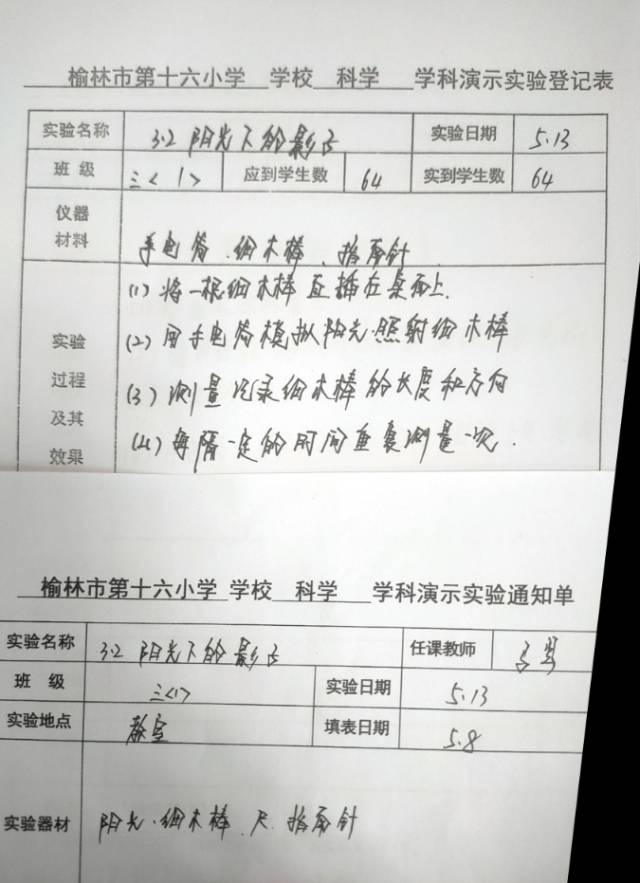 榆林市第十六小学 学校 科学 学科演示实验登记表
实验名称 3.2 阳光下的影子 实验日期 5.13
班 级 三<1> 应到学生数 64 实到学生数 64
仪器
材料 手电筒.细木棒、指南针
实验
过程
及其
效果
(1) 将一根细木棒直插在桌面上.
(2) 用手电筒模拟阳光.照射细木棒
(3) 测量记录细木棒的长度和方向
(4) 每隔一定的时间重复测量一次.
榆林市第十六小学 学校 科学 学科演示实验通知单
实验名称 3.2 阳光下的影子 任课教师
班 级 三<1> 实验日期 5.13
实验地点 教室 填表日期 5.8
实验器材 阳光.细木棒、尺.指南针